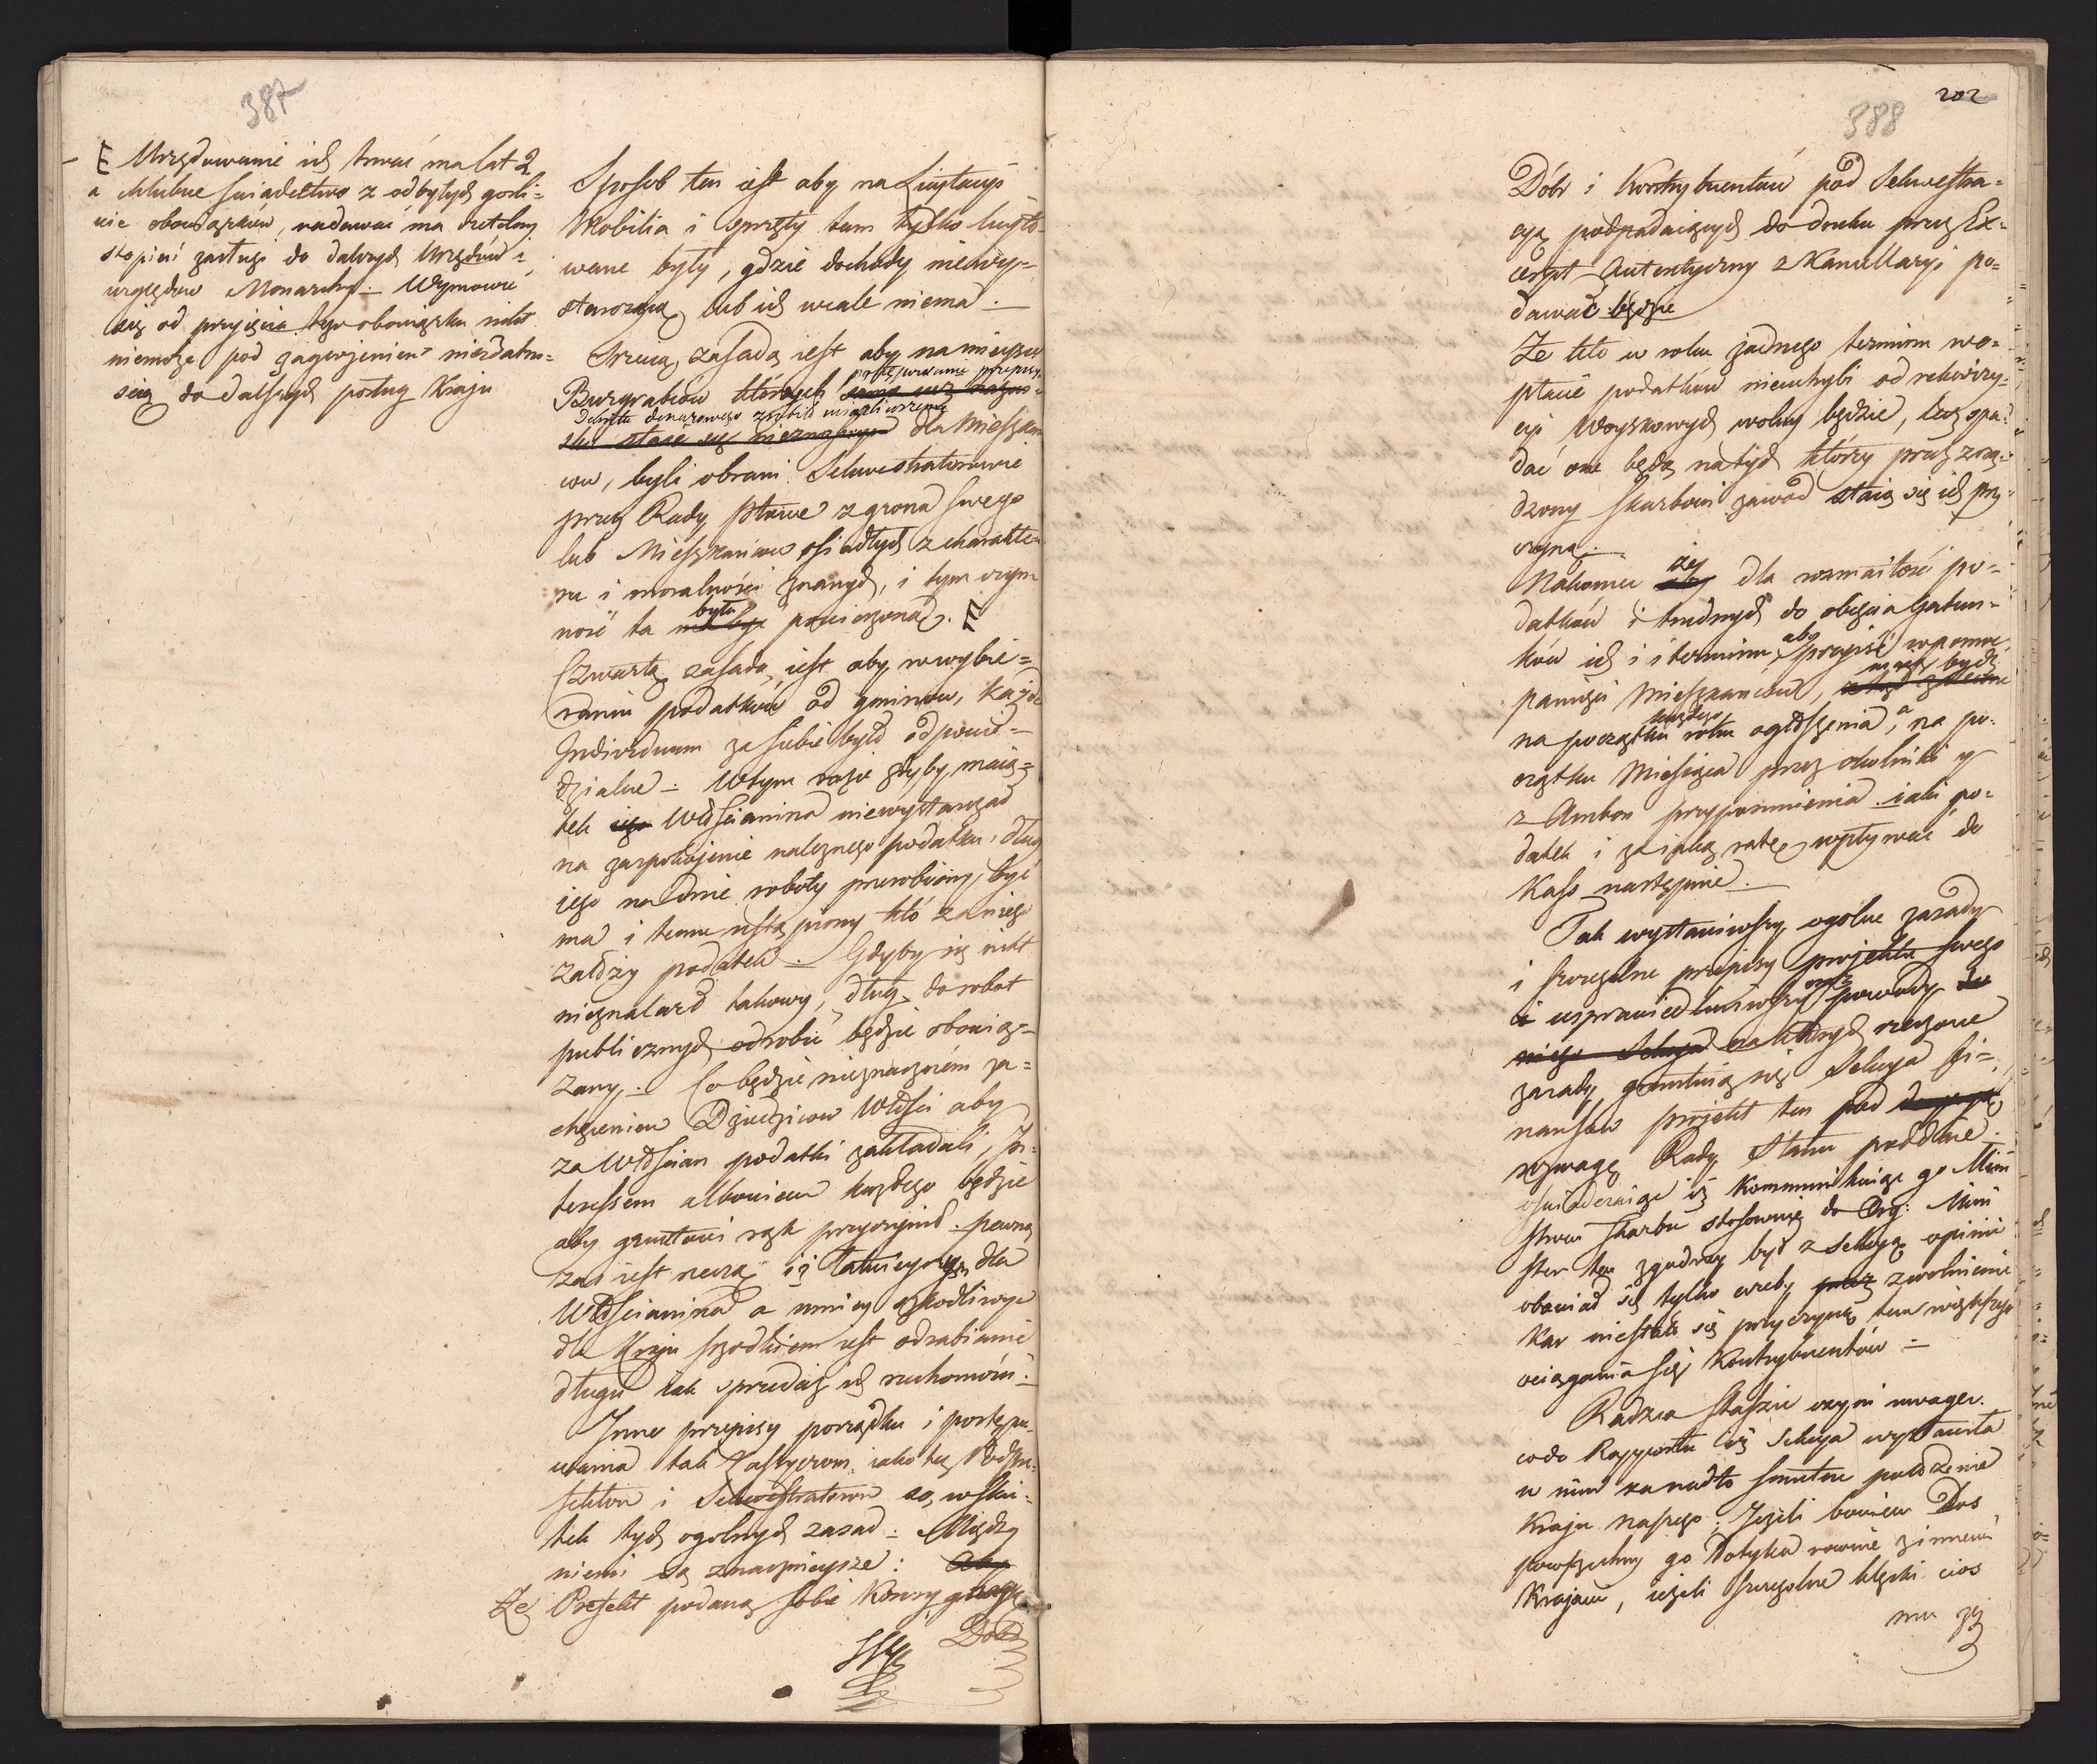 387
Urzędowanie ich trwać ma lat 2
a chlubne świadectwo z odbytych gorli=
wie obowiązków, nadawać ma rzetelny
stopień zasługi do dalszych Urzędów i
względów Monarchy. Wymowić
się od przyięcia tego obowiązku nikt
niemoże pod zagrożeniem niezdatno=
ścią do dalszych posług Kraju
Sposob ten iest aby na Licytacyi
Mobilia i sprzęty tam tylko licyto=
wane były, gdzie dochody niewy=
starczaią lub ich wcale niema.
Trzecią zasadą iest aby na mieysce
Burgrabiow których postępowanie przepisy
Dekretu
stać się dla Mieszkan
cow, byli obrani Sekwestratorowie
przez Rady Pttowe z grona swego
lub Mieszkańcow osiadłych z charakte=
ru i moralności znanych, i tym czyn=
ność ta była powierzona.
Czwartą zasadą iest aby w wybie=
raniu podatków od gminow, każde
Individuum za siebie było odpowie=
dzialne. W tym razie gdyby maią=
tek iego Włościanina niewystarczał
na zaspokoienie należnego podatku, dług
iego na dnie roboty przerobiony być
ma i temu ustąpiony któ za niego
założy podatek. Gdyby się nikt
nieznalazł takowy, dług do robot
publicznych odrobić będzie obowią=
zany. Co będzie nieznacznem za=
chęceniem Dziedzicow Włości aby
za Włościan podatki zakładali, In=
teressem albowiem każdego będzie
aby gruntowi rąk przyczynił. pewną
zaś iest rzeczą iż łatwieyszym dla
Włościanina a mniey szkodliwym
dla Kraju srzodkiem iest odrabianie
długu iak sprzedaż ich ruchomości.
Inne przepisy porządku i postępo=
wania tak Zastępcom iako też Podpre=
fektow i Sekwestratorow są, w sku=
tek tych ogolnych zasad. Między
niemi są znacznieysze: Aby
Że Prefekt podaną sobie Konsygnacyę
Dobr
202
388
Dóbr i Kontrybuentów pod Sekwestra=
cyą podpadaiących do druku przez Ex=
cerpt Autentyczny z Kancellaryi po=
dawać będzie
Że kto w roku żadnego terminu wy=
płacie podatków nieuchybi od rekwizy=
cyi Woyskowych wolny będzie, lecz spa=
dać one będą na tych którzy przez zrzą=
dzony Skarbowi zawód staią się ich przy=
czyną.
Nakoniec iży dla rozmaitości po=
datków i trudnych do obięcia gatun=
ków ich i terminu, aby przyiść w pomoc
pamięci Mieszkancow, maią bydź
na początku każdego roku ogłoszenia, a na po=
czątku Miesiąca przez okolniki y
z Ambon przypomnienia iaki po=
datek i za iaką ratę wpływać do
Kass następnie.
Tak wystawiwszy ogolne zasady
i szczegolne przepisy projektu swego
i usprawiedliwiwszy oraz powody
niego Sekcya na których rzeczone
zasady gruntuią się Sekcya Fi=
nansow projekt ten pod
rozwagę Rady Stanu poddaie.
oświadczaiąc iż kommunikuiąc go Mini
strowi Skarbu stosownie do Org: Mini
ster ten zgodny był z Sekcyą opinii
obawiał się tylko ażeby przez zwolnienie
kar niestało się przyczyną tem większego
ociągania się Kontrybuentów.
Radzca Staszic czyni uwagę.
co do Rapportu iż Sekcya wystawiła
w nim za nadto smutne położenie
Kraju naszego; Jeżeli bowiem Los
powszechny go dotyka rownie z innemi
Kraiami, ieżeli szczegolne klęski cios
mu